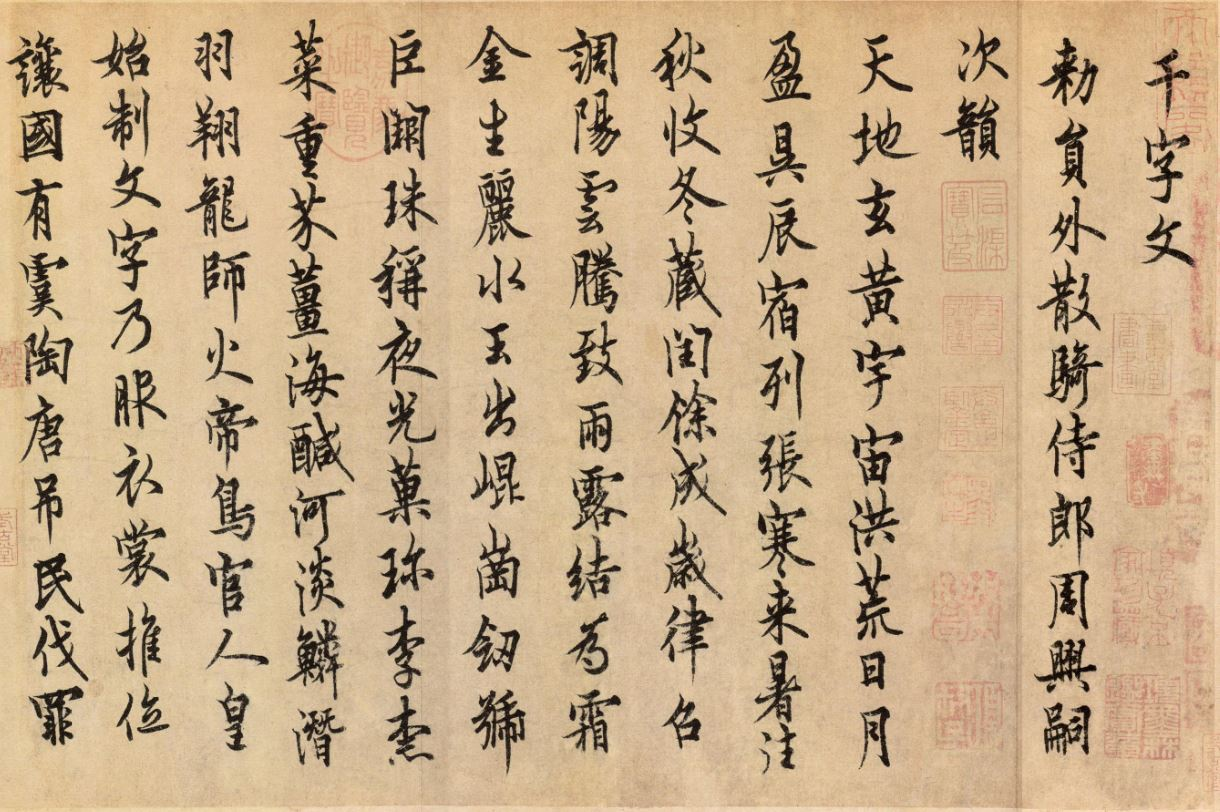 千字文
勑員外散騎侍郎周興嗣
次韻
天地玄黃宇宙洪荒日月
盈昃辰宿列張寒来暑往
秋收冬藏閏餘成歲律召
調陽雲騰致雨露結為霜
金生麗水玉出崐崗劒號
巨闕珠稱夜光菓珍李柰
菜重芥薑海鹹河淡鱗潛
羽翔龍師火帝鳥官人皇
始制文字乃服衣裳推位
讓國有虞陶唐吊民伐罪